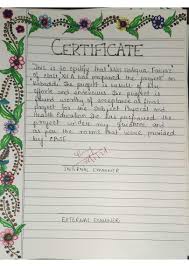 CERTIFICATE
This is to certify that Miss
of class XI A has prepared the project on
Kabaddi. The project is result of her
efforts and endeavours. The project is
found worthy of acceptance as final
project for the subject Physical and
Health Education. She has prepared the
project under my guidance and
as per the norms that were provided
by CBSE.
INTERNAL EXAMINER
EXTERNAL EXAMINER